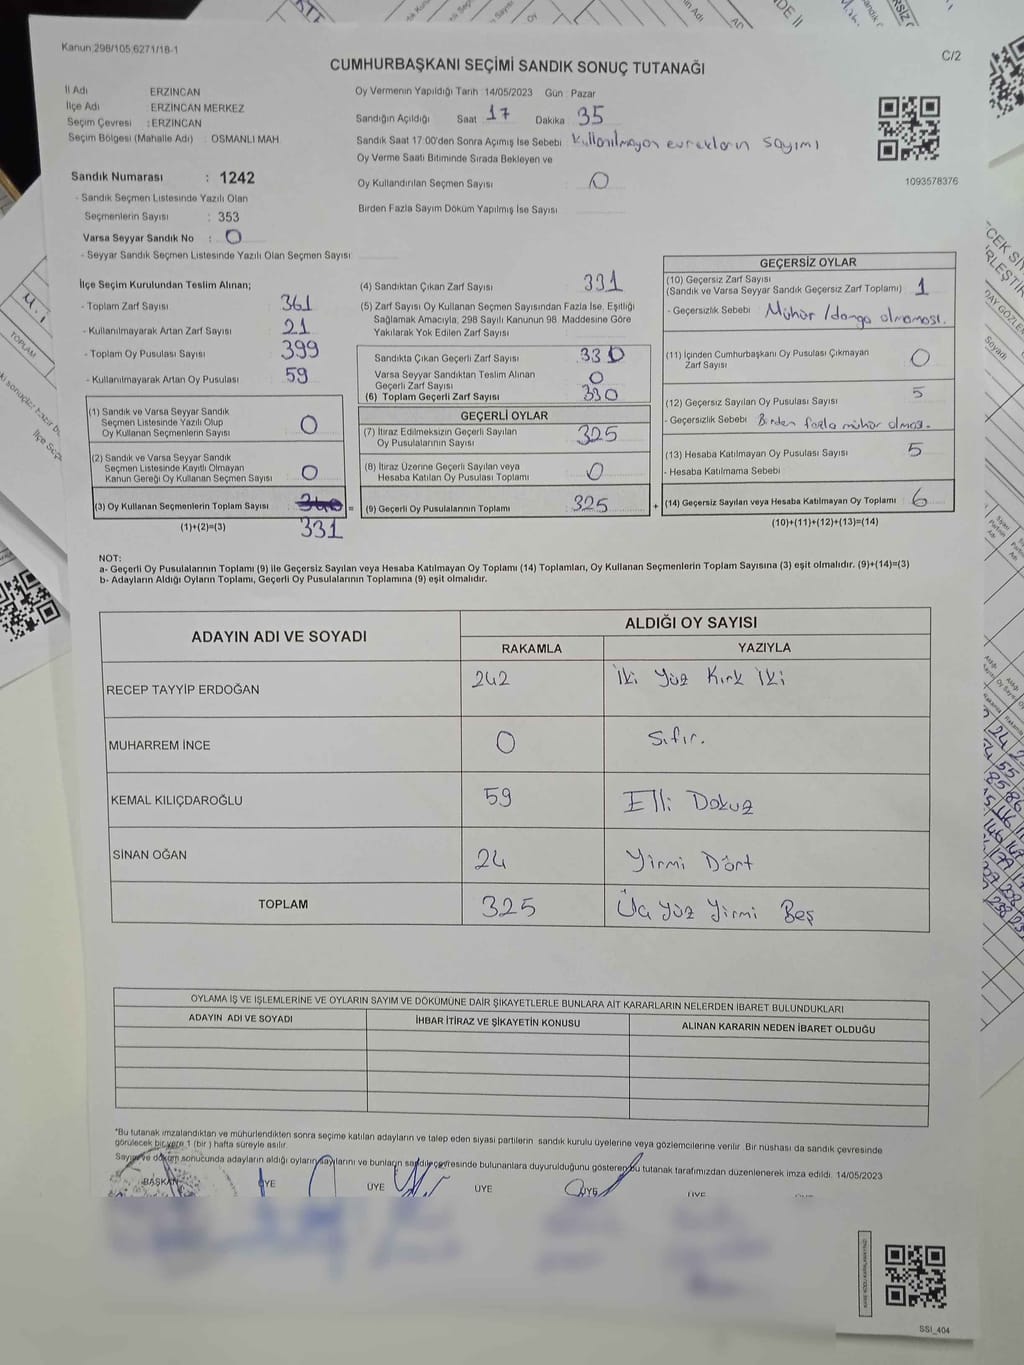 Kanun:298/105,6271/18-1
C/2
CUMHURBAŞKANI SEÇİMİ SANDIK SONUÇ TUTANAĞI
İl Adı ERZİNCAN
İlçe Adı : ERZİNCAN MERKEZ
Seçim Çevresi : ERZİNCAN
Seçim Bölgesi (Mahalle Adı) : OSMANLI MAH.
Sandık Numarası : 1242
- Sandık Seçmen Listesinde Yazılı Olan
Seçmenlerin Sayısı : 353
Varsa Seyyar Sandık No : 0
- Seyyar Sandık Seçmen Listesinde Yazılı Olan Seçmen Sayısı:
Oy Vermenin Yapıldığı Tarih :14/05/2023 Gün : Pazar
Sandığın Açıldığı Saat : 17 Dakika : 35
Sandık Saat 17:00'den Sonra Açımış İse Sebebi : Kullanılmayan evrakların sayımı
Oy Verme Saati Bitiminde Sırada Bekleyen ve
Oy Kullandırılan Seçmen Sayısı : 0
Birden Fazla Sayım Döküm Yapılmış İse Sayısı :
1093578376
İlçe Seçim Kurulundan Teslim Alınan;
- Toplam Zarf Sayısı : 361
- Kullanılmayarak Artan Zarf Sayısı : 21
- Toplam Oy Pusulası Sayısı : 399
- Kullanılmayarak Artan Oy Pusulası : 59
(1) Sandık ve Varsa Seyyar Sandık
Seçmen Listesinde Yazılı Olup
Oy Kullanan Seçmenlerin Sayısı : 0
(2) Sandık ve Varsa Seyyar Sandık
Seçmen Listesinde Kayıtlı Olmayan
Kanun Gereği Oy Kullanan Seçmen Sayısı : 0
(3) Oy Kullanan Seçmenlerin Toplam Sayısı : 340 =
(1)+(2)=(3) 331
(4) Sandıktan Çıkan Zarf Sayısı : 331
(5) Zarf Sayısı Oy Kullanan Seçmen Sayısından Fazla İse, Eşitliği
Sağlamak Amacıyla, 298 Sayılı Kanunun 98. Maddesine Göre
Yakılarak Yok Edilen Zarf Sayısı :
Sandıkta Çıkan Geçerli Zarf Sayısı : 330
Varsa Seyyar Sandıktan Teslim Alınan
Geçerli Zarf Sayısı : 0
(6) Toplam Geçerli Zarf Sayısı : 330
GEÇERLİ OYLAR
(7) İtiraz Edilmeksizin Geçerli Sayılan
Oy Pusulalarının Sayısı : 325
(8) İtiraz Üzerine Geçerli Sayılan veya
Hesaba Katılan Oy Pusulası Toplamı : 0
(9) Geçerli Oy Pusulalarının Toplamı : 325 +
GEÇERSİZ OYLAR
(10) Geçersiz Zarf Sayısı
(Sandık ve Varsa Seyyar Sandık Geçersiz Zarf Toplamı) : 1
- Geçersizlik Sebebi : Mühür / damga olmaması.
(11) İçinden Cumhurbaşkanı Oy Pusulası Çıkmayan
Zarf Sayısı : 0
(12) Geçersiz Sayılan Oy Pusulası Sayısı : 5
- Geçersizlik Sebebi : Birden fazla mühür olması.
(13) Hesaba Katılmayan Oy Pusulası Sayısı : 5
- Hesaba Katılmama Sebebi :
(14) Geçersiz Sayılan veya Hesaba Katılmayan Oy Toplamı : 6
(10)+(11)+(12)+(13)=(14)
NOT:
a- Geçerli Oy Pusulalarının Toplamı (9) ile Geçersiz Sayılan veya Hesaba Katılmayan Oy Toplamı (14) Toplamları, Oy Kullanan Seçmenlerin Toplam Sayısına (3) eşit olmalıdır. (9)+(14)=(3)
b- Adayların Aldığı Oyların Toplamı, Geçerli Oy Pusulalarının Toplamına (9) eşit olmalıdır.
ADAYIN ADI VE SOYADI ALDIĞI OY SAYISI
RAKAMLA YAZIYLA
RECEP TAYYİP ERDOĞAN 242 İki Yüz Kırk İki
MUHARREM İNCE 0 Sıfır.
KEMAL KILIÇDAROĞLU 59 Elli Dokuz
SİNAN OĞAN 24 Yirmi Dört
TOPLAM 325 Üç Yüz Yirmi Beş
OYLAMA İŞ VE İŞLEMLERİNE VE OYLARIN SAYIM VE DÖKÜMÜNE DAİR ŞİKAYETLERLE BUNLARA AİT KARARLARIN NELERDEN İBARET BULUNDUKLARI
ADAYIN ADI VE SOYADI İHBAR İTİRAZ VE ŞİKAYETİN KONUSU ALINAN KARARIN NEDEN İBARET OLDUĞU
"Bu tutanak imzalandıktan ve mühürlendikten sonra seçime katılan adayların ve talep eden siyasi partilerin sandık kurulu üyelerine veya gözlemcilerine verilir. Bir nüshası da sandık çevresinde
görülecek bir yere 1 (bir ) hafta süreyle asılır.
Sayım ve döküm sonucunda adayların aldığı oyların sayılarını ve bunların sandık çevresinde bulunanlara duyurulduğunu gösteren bu tutanak tarafımızdan düzenlenerek imza edildi. 14/05/2023
BAŞKAN ÜYE ÜYE ÜYE ÜYE
SSI_404